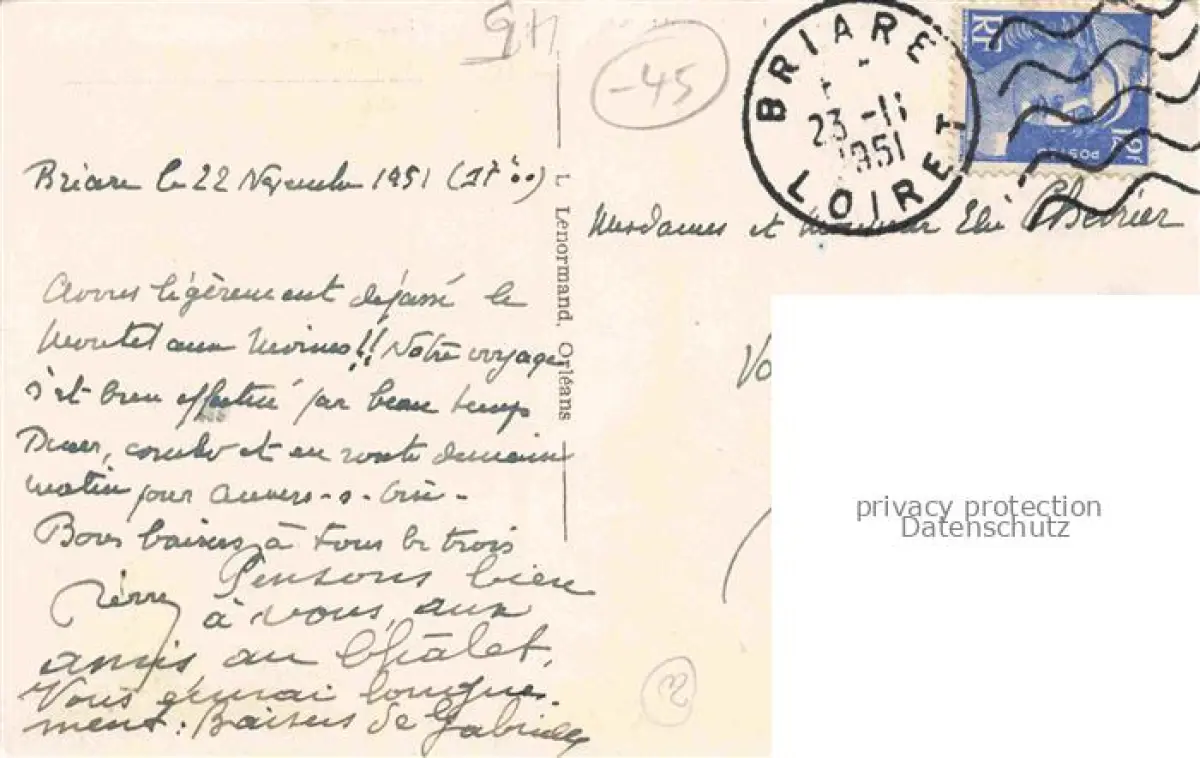 45
-45
BRIARE
23-11
1951
LOIRET
RF
POSTES
12f
Briare le 22 Novembre 1951 (17h00)
Avons légèrement dépassé le
Moutet aux Moines!! Notre voyage
s'est bien effectué par beau temps
Diner, coucher et en route demain
matin pour Auvers-s-Oise -
Bons baisers à tous le trois
Pierre
Pensons bien
à vous, aux
amis au Châlet.
Vous écrirai longue-
ment. Baisers de Gabrielle
L. Lenormand, Orléans
Mesdames et Monsieur Elie Chevrier
privacy protection
Datenschutz